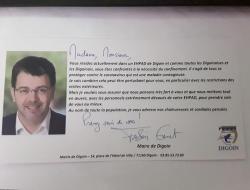 Madame, Monsieur,
Vous résidez actuellement dans un EHPAD de Digoin et comme toutes les Digoinaises et
les Digoinais, vous êtes confrontés à la nécessité du confinement. Il s'agit de tous se
protéger contre le coronavirus qui est une maladie contagieuse.
Je sais combien cela peut être perturbant pour vous, en particulier avec les restrictions des
visites extérieures.
Mais je voulais vous assurer que nous pensons très fort à vous et que nous mettons tout
en œuvre, avec les personnels extrêmement dévoués de votre EHPAD, pour prendre soin
de vous au mieux.
Au nom de toute la population, je vous adresse nos chaleureuses et cordiales pensées.
Prenez soin de vous
Maire de Digoin
DIGOIN
Mairie de Digoin - 14, place de l'Hôtel de Ville - 71160 Digoin - 03 85 53 73 00